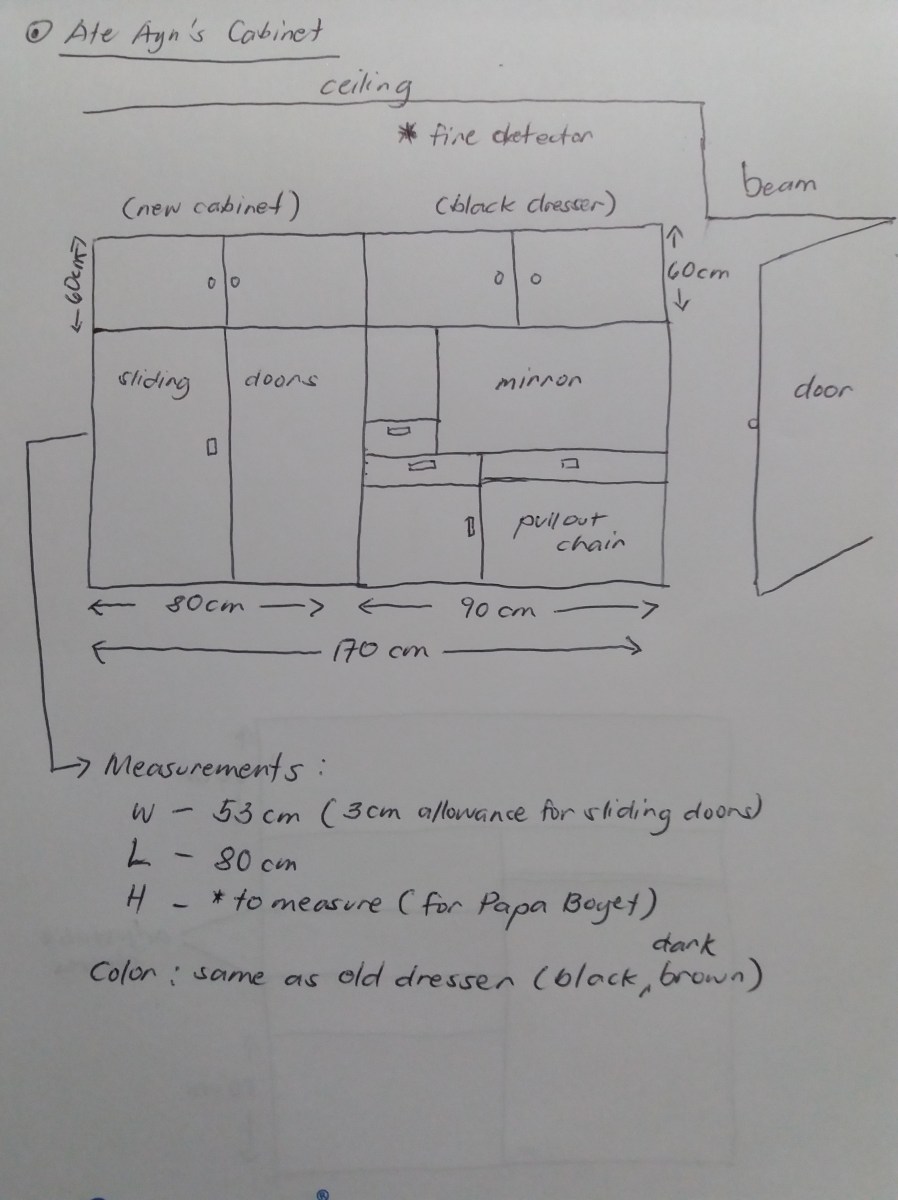 Ate Ayn's Cabinet
ceiling
* fire detector
beam
(new cabinet) (black dresser)
60cm
60cm
sliding doors
mirror
door
pullout
chair
80cm
90 cm
170 cm
Measurements :
W - 53 cm (3cm allowance for sliding doors)
L - 80 cm
H - * to measure (for Papa Boyet)
Color : same as old dresser (black, dark brown)